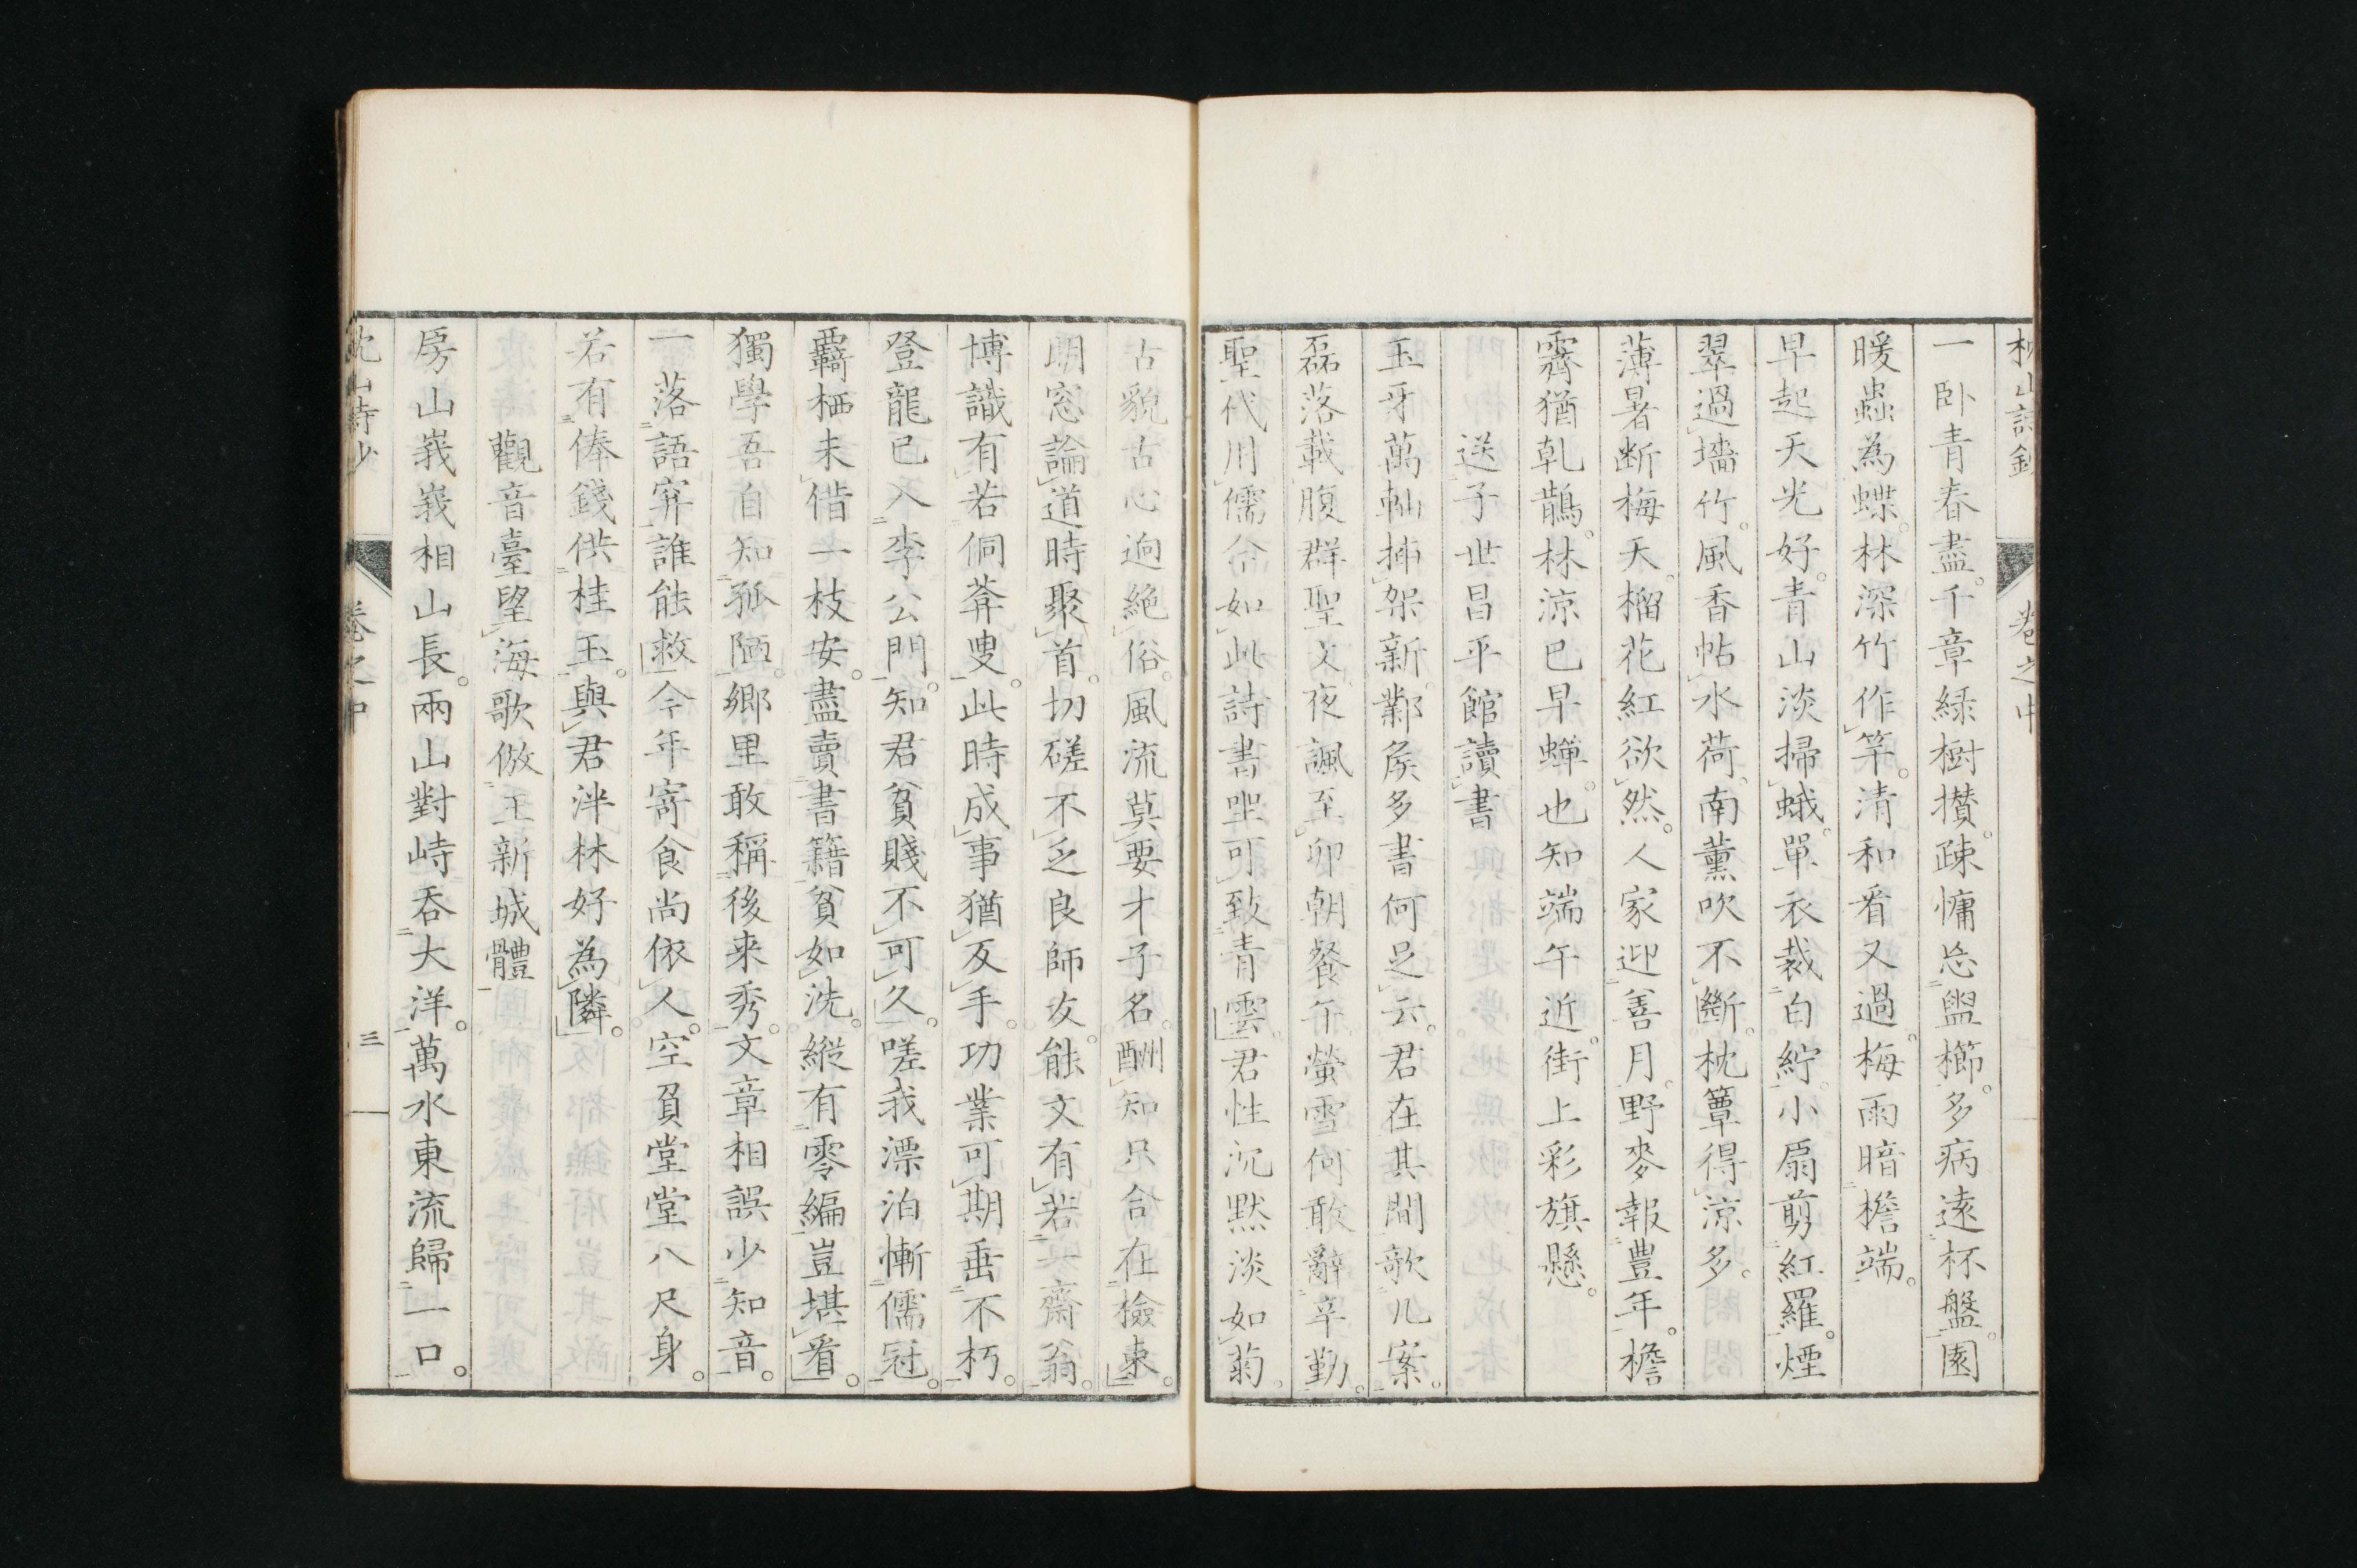 枕山詩鈔 卷之中
一臥青春盡。千章緑樹攅。疎慵忘盥櫛。多病遠杯盤。園
暖蟲為蝶。林深竹作竿。清和看又過。梅雨暗檐端。
早起天光好。青山淡掃蛾。單衣裁白紵。小扇剪紅羅。煙
翠過墻竹。風香帖水荷。南薫吹不斷。枕簟得涼多。
薄暑断梅天。榴花紅欲然。人家迎善月。野麥報豊年。檐
霽猶乹鵲。林涼已早蟬。也知端午近。街上彩旗懸。
送子世昌平館讀書
玉牙萬軸挿架新。鄴矦多書何足云。君在其間欹几案。
磊落載腹群聖文。夜諷至卯朝餐午。螢雪何敢辭辛勤。
聖代用儒今如此。詩書坐可致青雲。君性沉黙淡如菊。
古貌古心逈絶俗。風流莫要才子名。酬知只合在檢束。
明窓論道時聚首。切磋不乏良師友。能文有若一齋翁。
博識有若侗葊叟。此時成事猶反手。功業可期垂不朽。
登龍已入李公門。知君貧賤不可久。嗟我漂泊慚儒冠
覊栖未借一枝安。盡賣書籍貧如洗。縦有零編豈堪看。
獨學吾自知孤陋。郷里敢稱後来秀。文章相誤少知音。
一落語穽誰能救。今年寄食尚依人。空負堂堂八尺身。
若有俸錢供桂玉。與君泮林好為隣。
觀音臺望海歌倣王新城體
房山峩峩相山長。兩山對峙吞大洋。萬水東流歸一口。
枕山詩鈔 卷之中 三